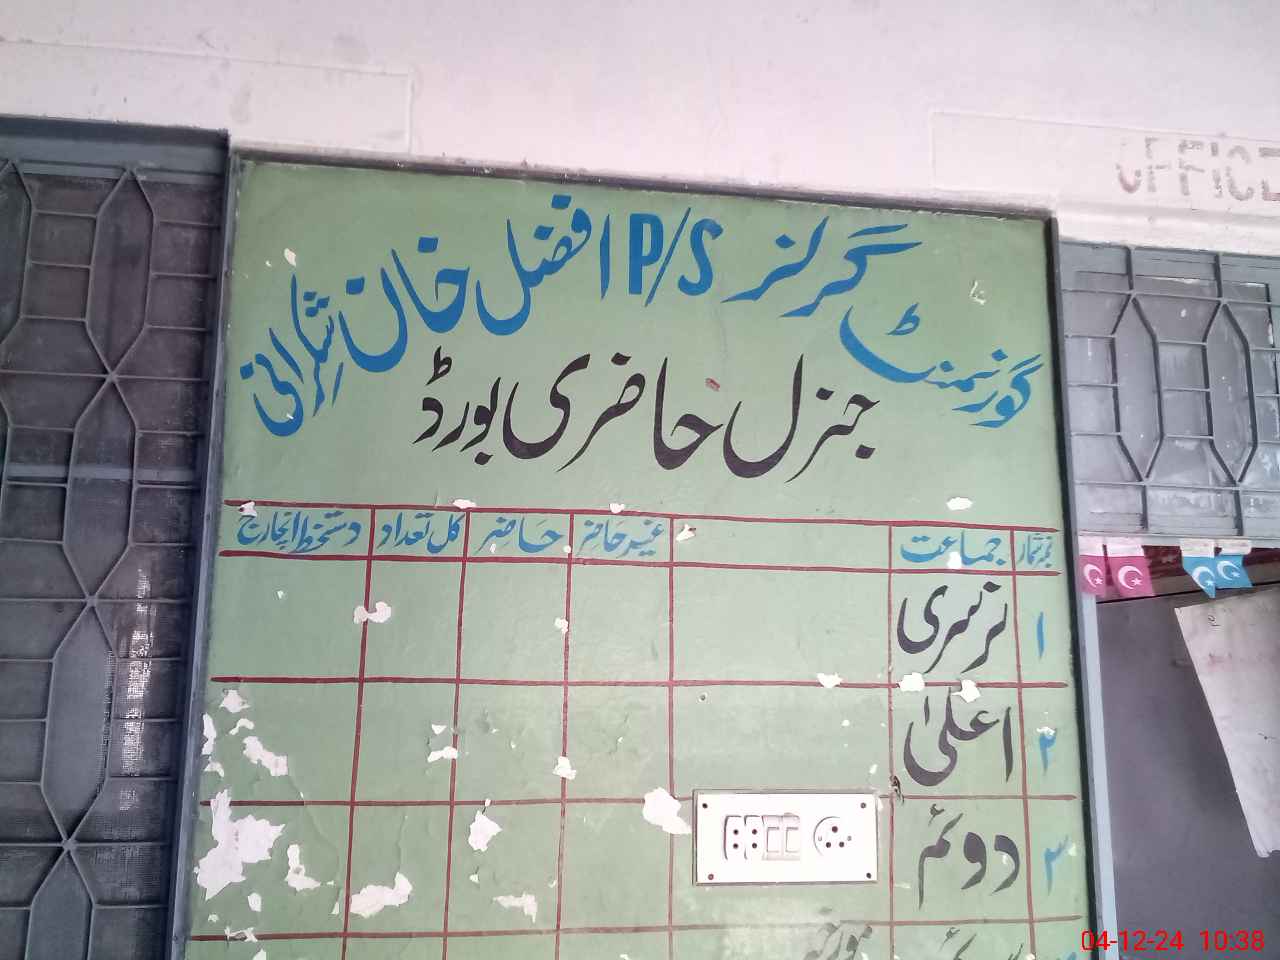 OFFICE
گورنمنٹ گرلز P/S افضل خان شکرانی
جنرل حاضری بورڈ
نمبر شمار جماعت غیر حاضر حاضر کل تعداد دستخط انچارج
۱ نرسری
۲ اعلیٰ
۳ دوئم
04-12-24 10:38